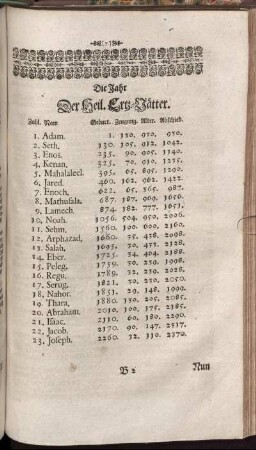 Die Jahr
Der Heil. Ertz-Vätter.
Zahl. Nam. Geburt. Zeugung. Alter. Abschied.
1. Adam. 1. 130. 930. 930.
2. Seth. 130. 105. 912. 1042.
3. Enos. 235. 90. 905. 1140.
4. Kenan. 325. 70. 910. 1235.
5. Mahalaleel. 395. 65. 895. 1290.
6. Jared. 460. 162. 962. 1422.
7. Enoch. 622. 65. 365. 987.
8. Mathusala. 687. 187. 969. 1656.
9. Lamech. 874. 182. 777. 1651.
10. Noah. 1056. 504. 950. 2006.
11. Sehm. 1560. 100. 600. 2160.
12. Arphazad. 1660. 35. 438.
13. Salah. 1695. 30. 433. 2128.
14. Eber. 1725. 34. 464.
15. Peleg. 1759. 30. 239. 1998.
16. Regu. 1789. 32. 239. 2028.
17. Serug. 1821. 30. 230. 2050.
18. Nahor. 1851. 29. 148. 1999.
19. Thara. 1880. 130. 205. 2085.
20. Abraham. 2010. 100. 175. 2185.
21. Isaac. 2110. 60. 180. 2290.
22. Jacob. 2170. 90. 147. 2317.
23. Joseph. 2260. 32. 110. 2370.
B 2 Nun